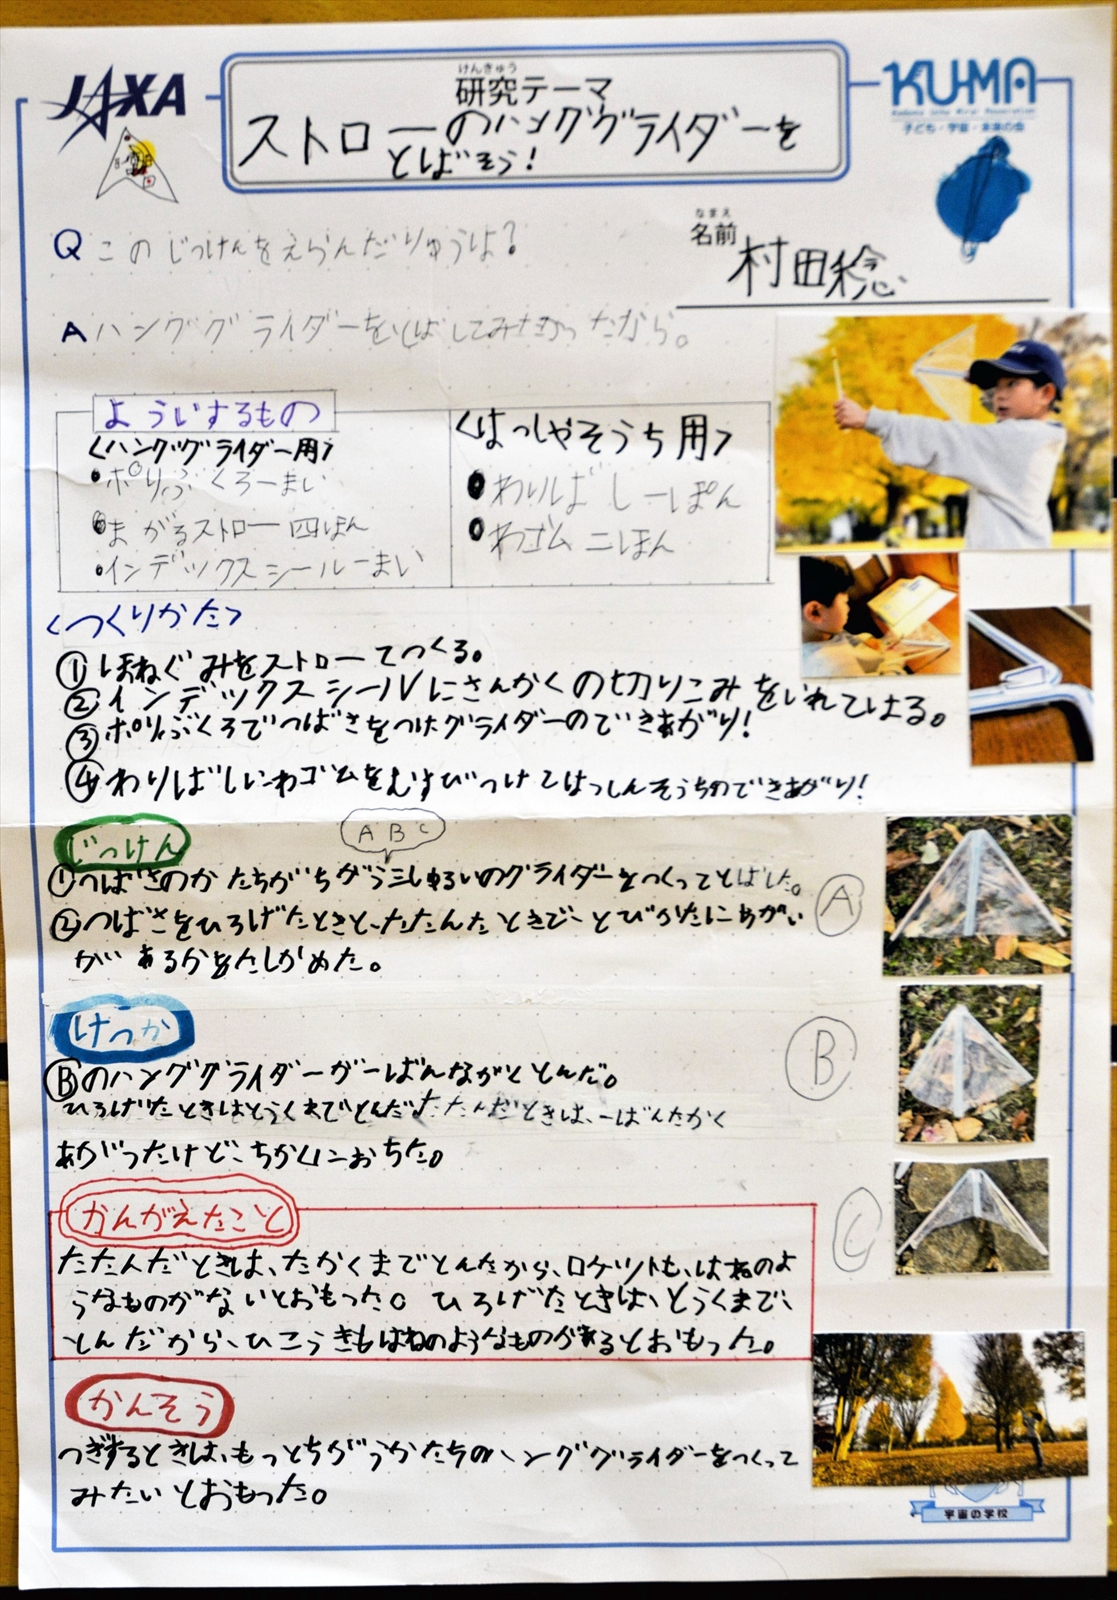 JAXA
研究テーマ
けんきゅう
ストローのハンググライダーを
とばそう!
KU-MA
子ども・宇宙・未来の会
なまえ
名前
村田稔
Q このじっけんをえらんだりゆうは?
A ハンググライダーをとばしてみたかったから。
よういするもの
<ハンググライダー用>
・ポリぶくろ一まい
・まがるストロー四ほん
・インデックスシール一まい
<はっしゃそうち用>
・わりばし一ぽん
・わゴム二ほん
<つくりかた>
①ほねぐみをストローでつくる。
②インデックスシールにさんかくの切りこみをいれてはる。
③ポリぶくろでつばさをつけグライダーのできあがり!
④わりばしにわゴムをむすびつけてはっしんそうちのできあがり!
じっけん
A B C
①つばさのかたちがちがう三しゅるいのグライダーをつくってとばした。
②つばさをひろげたときと、たたんだときで、とびかたにちがい
があるかをたしかめた。
A
けっか
B
ⒷのハンググライダーがⅠばんながくとんだ。
ひろげたときはとうくまでとんだ。たたんだときは、一ばんたかく
あがったけど、ちかくにおちた。
C
かんがえたこと
たたんだときは、たかくまでとんだから、ロケットも、はねのよ
うなものがないとおもった。ひろげたときは、とうくまで、
とんだから、ひこうきもはねのようなものがあるとおもった。
かんそう
つぎするときは、もっとちがうかたちのハンググライダーをつくって
みたいとおもった。
宇宙の学校